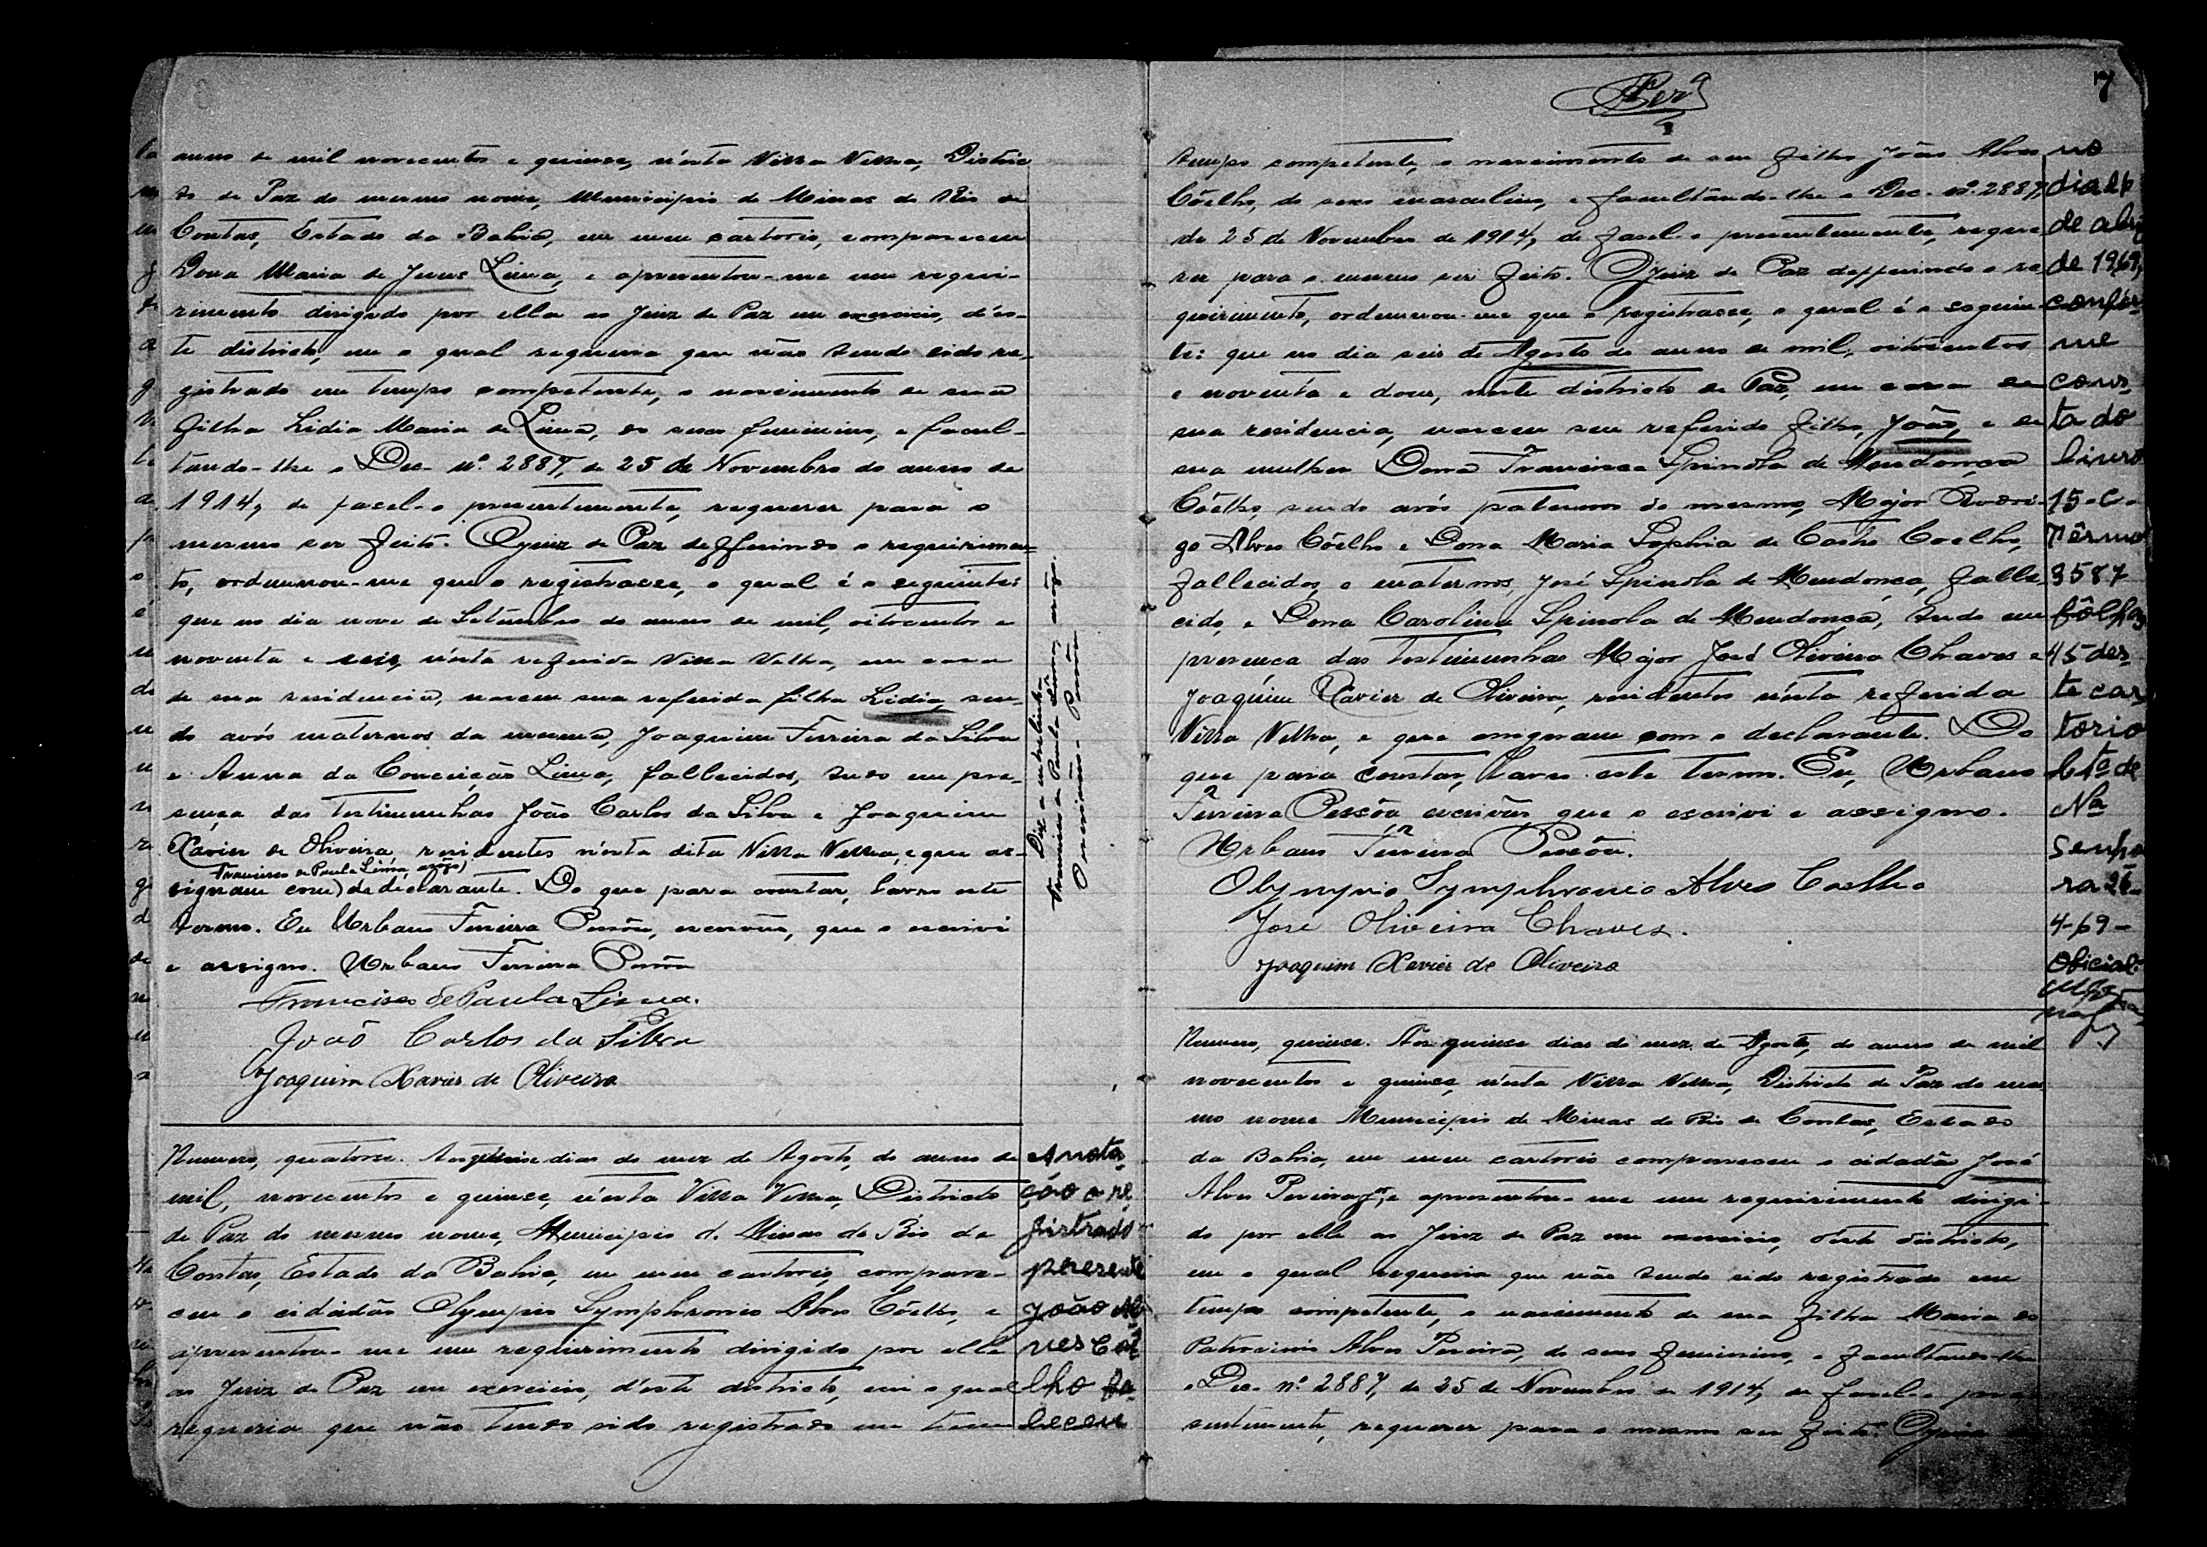 anno de mil novecentos e quinse, n'esta Villa Velha, Distric
to de Paz do mesmo nome, Municipio de Minas do Rio de
Contas, Estado da Bahia, em meu cartorio, compareceu
Dona Maria de Jesus Lima, e apresentou-me um requi-
rimento dirigido por ella ao Juiz de Paz em exercicio, d'es-
te districto, em o qual requeria que não tendo sido re-
gistrado em tempo competente, o nascimento de sua
filha Lidia Maria de Lima, do sexo feminino, e facul-
tando-lhe o Dec. nº 2887, de 25 de Novembro do anno de
1914, de fazel-o presentemente, requerer para o
mesmo ser feito. O Juiz de Paz defferindo o requirimen-
to, ordenou-me que o registrasse, o qual é o seguinte:
que no dia nove de Setembro do anno de mil, oitocentos e
noventa e seis, n'esta referida Villa Velha, em casa
de sua residencia, nasceu sua referida filha Lidia, sen-
do avós maternos da mesma, Joaquim Ferreira da Silva
e Anna da Conceição Lima, fallecidos, tudo em pre-
sença das testimunhas João Carlos da Silva e Joaquim
Xavier de Oliveira, residentes n'esta dita Villa Velha, e que as-
Francisco de Paula Lima, arôgo)
signam com) da declarante. Do que para constar, lavro este
termo. Eu Urbano Ferreira Pessôa, escrivão, que o escrivi
e assigno. Urbano Ferreira Pessôa
Francisco de Paula Lima.
João Carlos da Silva
Joaquim Xavier de Oliveira
Diz a entrelinha
Francisco de Paula Lima, arôgo.
O escrivão Pessôa
Numero, quatorse. Aos quinse dias do mez de Agosto, do anno de
mil, novecentos e quinse, n'esta Villa Velha, Districto
de Paz do mesmo nome, Municipio de Minas do Rio de
Contas, Estado da Bahia, em meu cartorio, compare-
ceu o cidadão Olympio Symphronio Alves Côelho, e
apresentou-me um requirimento dirigido por elle
ao Juiz de Paz em exercicio, d'este districto, em o qual
requeria que não tendo sido registrado em tem
Anota-
ção o re
gistrado
presente
João Al
ves Coê
lho fa-
leceu
7
tempo competente, o nascimento de seu filho João Alves
Côelho, do sexo masculino, e facultando-lhe o Dec. nº 2887,
de 25 de Novembro de 1914, de fazel-o presentemente, reque
rer para o mesmo ser feito. O Juiz de Paz defferindo o re
quirimento, ordenou-me que o registrasse, o qual é o seguin
te: que no dia seis de Agosto do anno de mil, oitocentos
e noventa e dous, neste districto de Paz, em casa de
sua residencia, nasceu seu referido filho, João, e de
sua mulher Dona Francisca Spinola de Mendonça
Côelho, sendo avós paternos do mesmo, Major Rodri-
go Alves Côelho e Dona Maria Sophia de Castro Coelho,
fallecidos, e maternos, José Spinola de Mendonça, falle
cido, e Dona Carolina Spinola de Mendonça, tudo em
presença das testimunhas Major José Oliveira Chaves e
Joaquim Xavier de Oliveira, residentes n'esta referida
Villa Velha, e que assignam com o declarante. Do
que para constar, lavro este termo. Eu, Urbano
Ferreira Pessôa escrivão, que o escrivi e assigno.
Urbano Ferreira Pessôa.
Olympio Symphronio Alves Coelho
José Oliveira Chaves.
Joaquim Xavier de Oliveira
no
dia
de abril
de 1969,
confór-
me
cons-
ta do
livro
15-C-
Têrmo
3587
fôlhas
45 des-
te car-
torio
Lto de
Na
Senho
ra 26-
4-69-
Oficial:
Numero, quinse. Aos quinse dias do mez de Agosto, do anno de mil
novecentos e quinse, n'esta Villa Velha, Districto de Paz do mes
mo nome Municipio de Minas do Rio de Contas, Estado
da Bahia, em meu cartorio compareceu o cidadão José
Alves Pereira Jr, e apresentou-me um requirimento dirigi-
do por elle ao Juiz de Paz em exercicio, d'este districto,
em o qual requeria que não tendo sido registrado em
tempo competente, o nascimento de sua filha Maria do
Patrocinio Alves Pereira, do sexo feminino, e facultando-lhe
o Dec. nº 2887, de 25 de Novembro de 1914, de fazel-o pre
sentemente, requerer para o mesmo ser feito. O Juiz